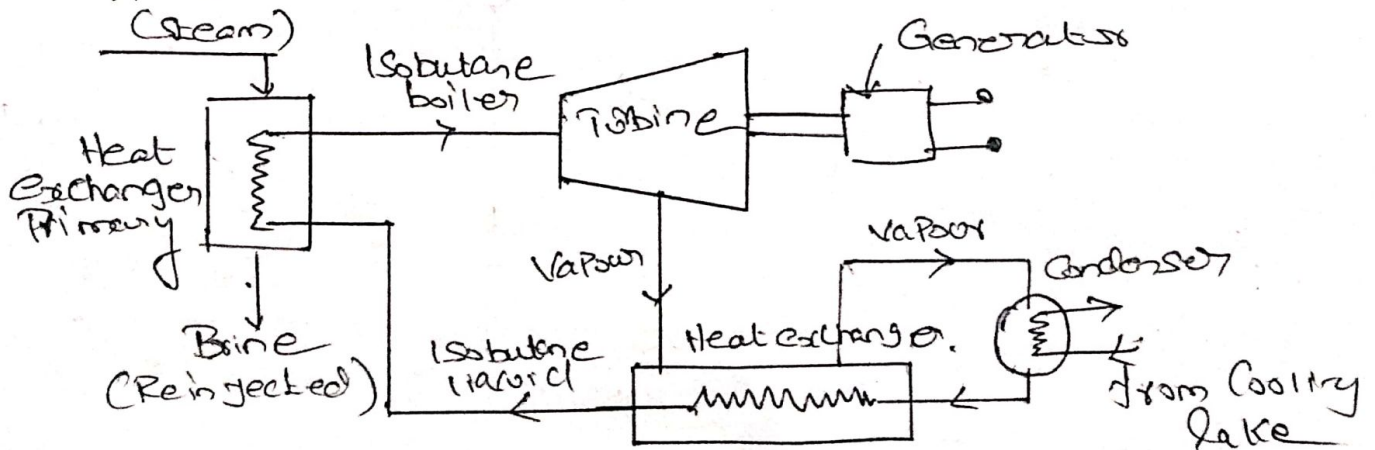 (Steam)
Isobutane
boiler
Generator
Turbine
Heat
exchanger
Primary
Vapour
Vapour
Condenser
Heat exchanger.
Brine
(Reinjected)
Isobutane
liquid
From Cooling
lake